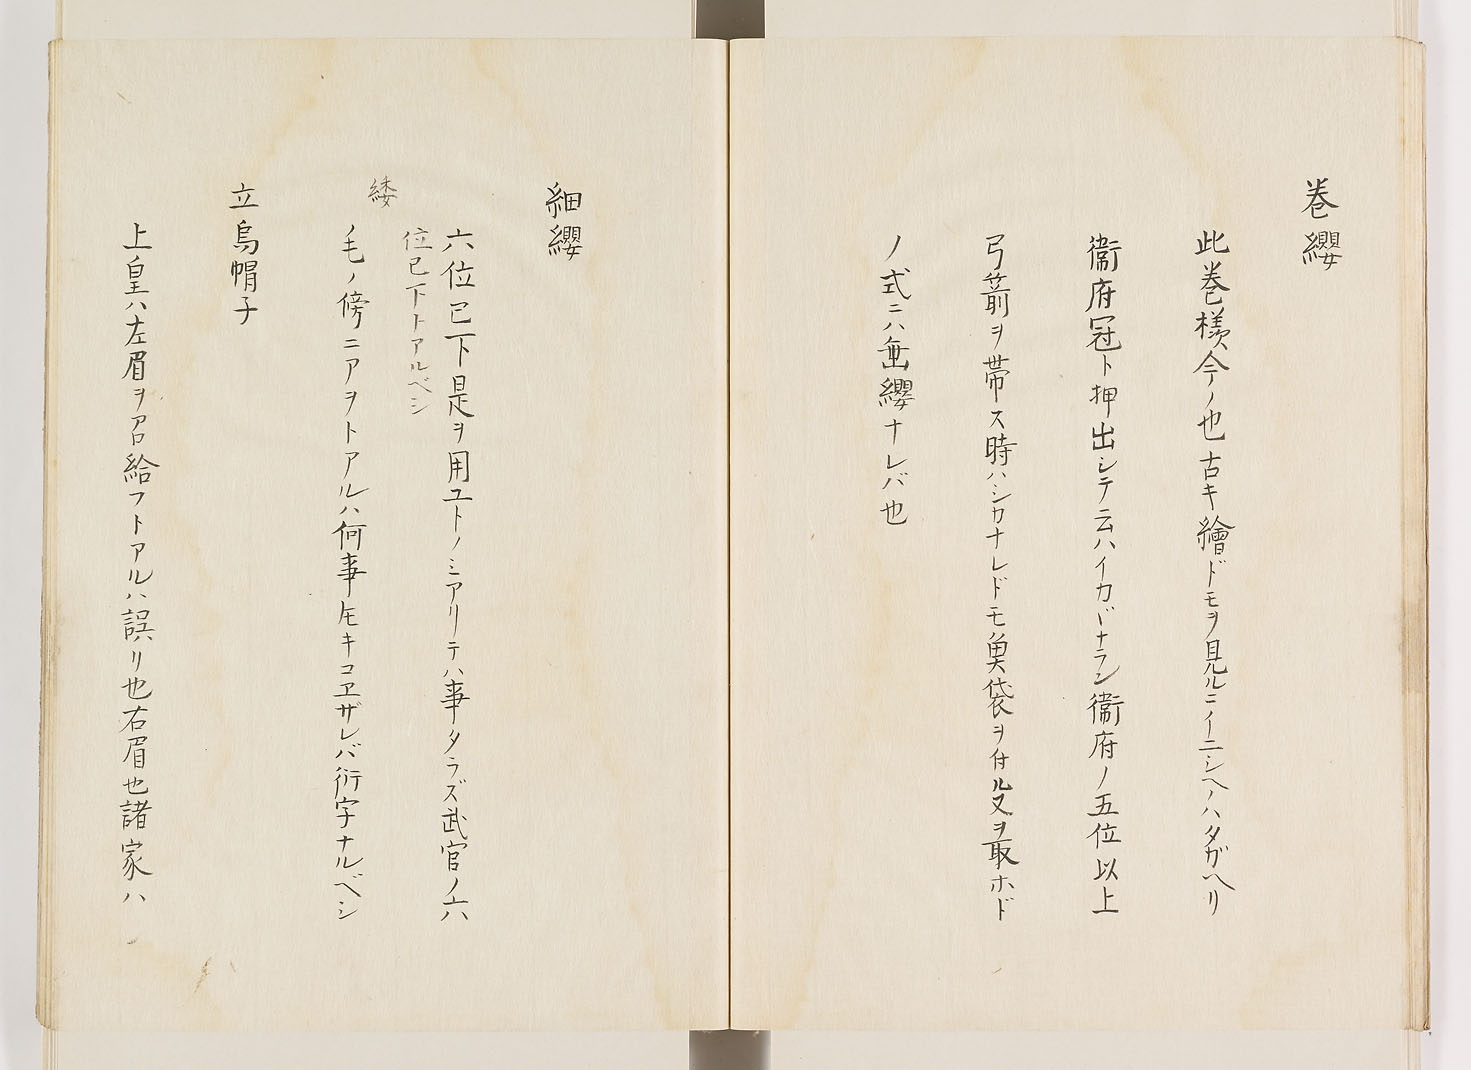 巻纓
此巻樣今ノ也古キ繪ドモヲ見ルニイニシヘノハタガヘリ
衞府冠ト押出シテ云ハイカヾナラン衞府ノ五位以上
弓箭ヲ帯ス時ハシカナレドモ魚袋ヲ付ル叉ヲ取ホド
ノ式ニハ垂纓ナレバ也
細纓
六位已下是ヲ用ユトノミアリテハ事タラズ武官ノ六
位已下トアルベシ
緌
ノ毛ノ傍ニアヲトアルハ何事ㇳモキコヱザレバ衍字ナルベシ
立烏帽子
上皇ハ左眉ヲ召給フトアルハ誤リ也右眉也諸家ハ